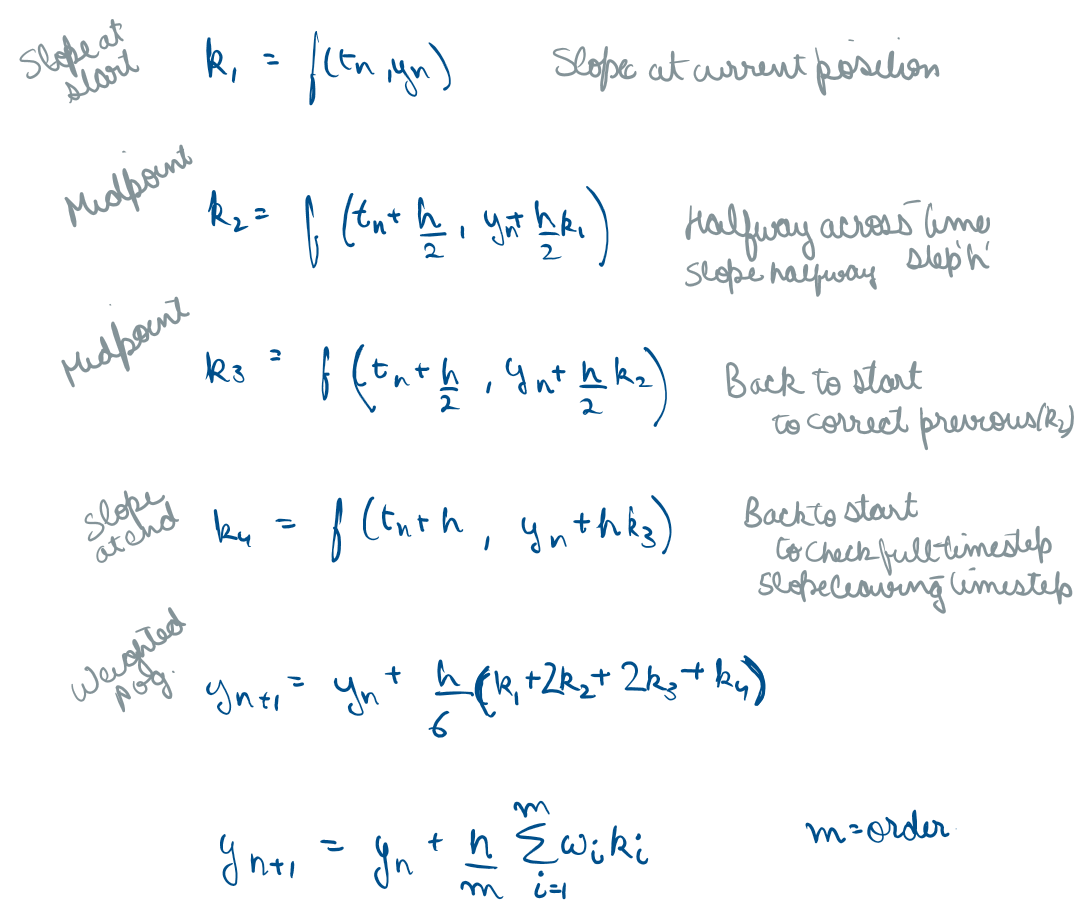 Slope at start k₁ = f(tn, yn) Slope at current position
Midpoint k₂ = f(tn + h/2, yn + h/2 k₁) Halfway across time step 'h'
slope halfway
Midpoint k3 = f(tn + h/2, yn + h/2 k₂) Back to start
to correct previous (k₂)
Slope at end k₄ = f(tn + h, yn + hk₃) Back to start
to check full timestep
slope leaving timestep
Weighted yn+1 = yn + h/6 (k₁ + 2k₂ + 2k₃ + k₄)
yn+1 = yn + h/m Σ i=1 m ωi ki m = order